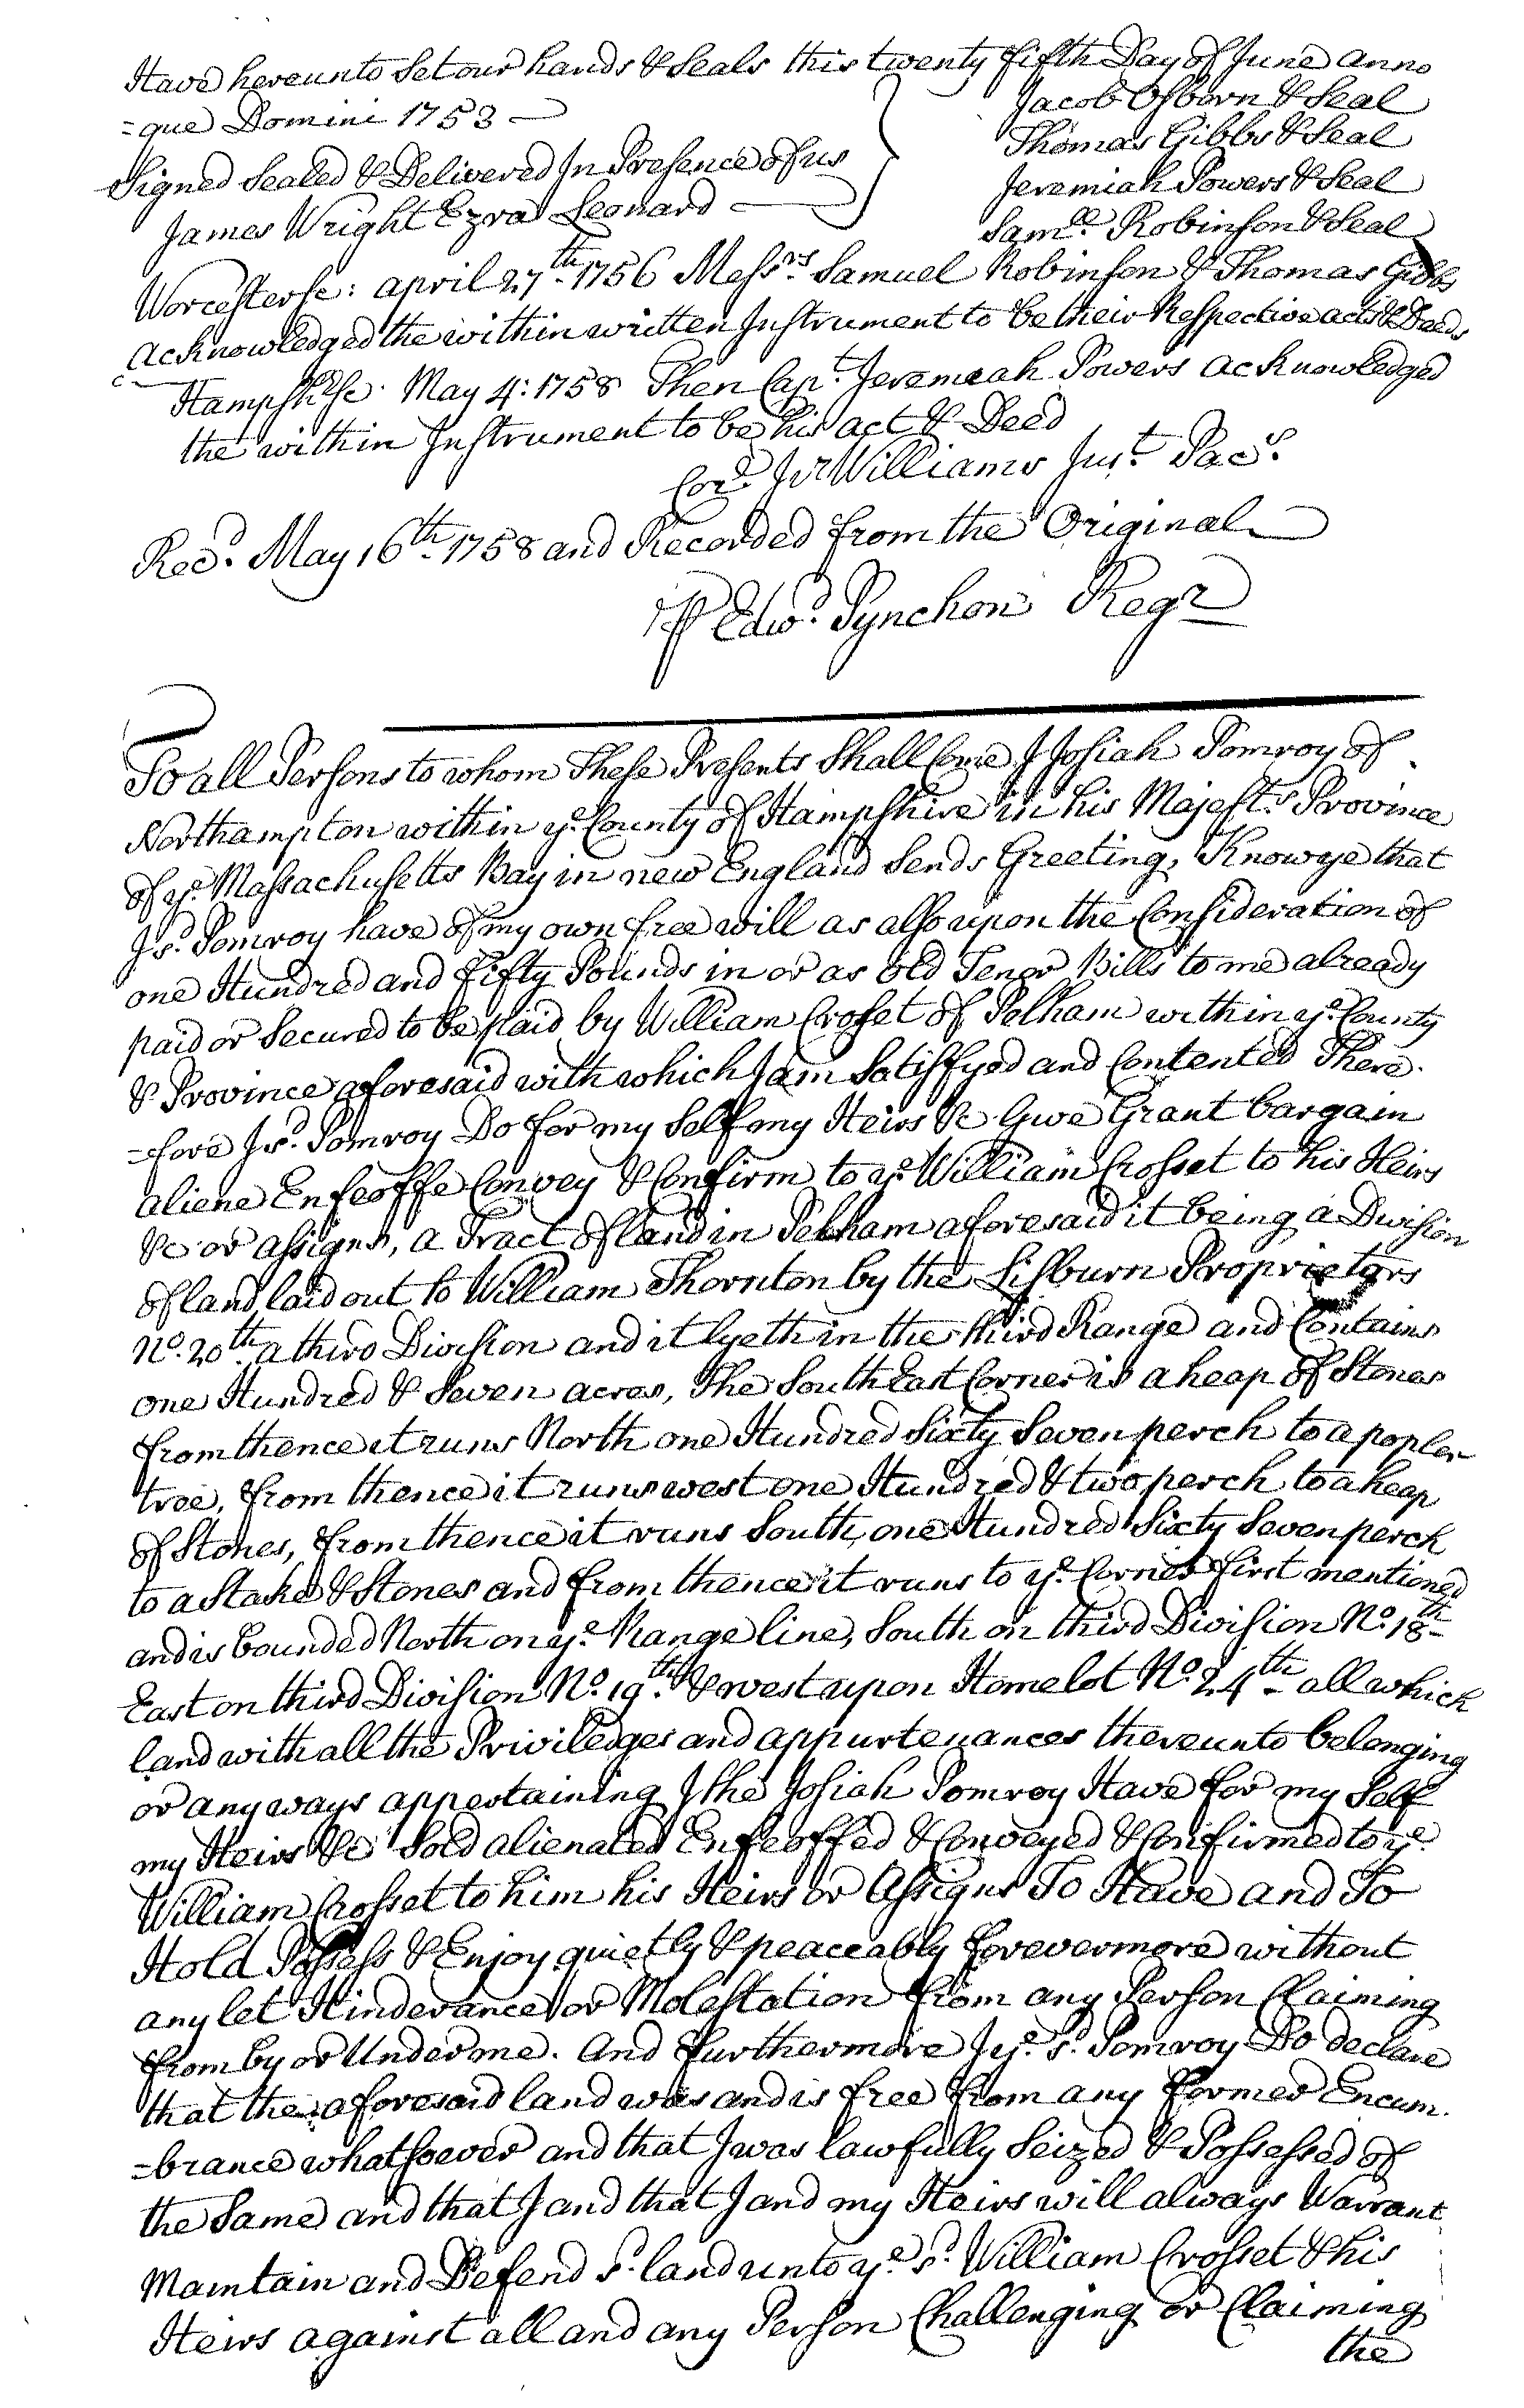 Have hereunto Set our hands & Seals this twenty fifth Day of June anno
=que Domini 1753
Jacob Osborn & Seal
Thomas Gibbs & Seal
Signed Sealed & Delivered In Presence of us
Jeremiah Powers & Seal
James Wright Ezra Leonard
Sam.ll Robinson & Seal
Worcester sc: april 27th 1756 Messrs Samuel Robinson & Thomas Gibbs
acknowledged the within written Instrument to be their Respective acts & Deeds
Hampsh sc. May 4: 1758 Then Capt. Jeremeah Powers acknowledged
the within Instrument to be his act & Deed
Cor.m Is Williams Jus.t Pac.s
Rec.d May 16th 1758 and Recorded from the Original
⅌ Edw.d Pynchon Regr
To all Persons to whom These Presents Shall Come I Josiah Pomroy of
Northampton within ye. County of Hampshire in his Majest.s Province
of ye. Massachusetts Bay in new England Sends Greeting, Know ye that
I s.d Pomroy have of my own free will as also upon the Consideration of
one Hundred and Fifty Pounds in or as old Tenor Bills to me already
paid or Secured to be paid by William Crosset of Pelham within ye. County
& Province aforesaid with which I am Satisfyed and Contented There-
=fore I s.d Pomroy Do for my Self my Heirs &c Give Grant bargain
aliene Enfeoffe Convey & Confirm to ye. William Crosset to his Heirs
&c or assigns, a Tract of land in Pelham aforesaid it being a Division
of land laid out to William Thornton by the Lisburn Proprietors
No. 20th a third Division and it lyeth in the third Range and Contains
one Hundred & Seven acres, The South East Corner is a heap of Stones
from thence it runs North one Hundred Sixty Seven perch to a popler
tree, from thence it runs west one Hundred & two perch to a heap
of Stones, from thence it runs South, one Hundred Sixty Seven perch
to a Stake & Stones and from thence it runs to ye. Corner first mentioned
and is bounded North on ye. Range line, South on third Division No. 18th
East on third Division No. 19th. & west upon Homelot No. 24th all which
land with all the Priviledges and appurtenances thereunto belonging
or any ways appertaining I the Josiah Pomroy Have for my Self
my Heirs &c Sold alienated Enfeoffed & Conveyed & Confirmed to ye.
William Crosset to him his Heirs or Assigns To Have and To
Hold Possess & Enjoy quietly & peaceably forevermore without
any let Hinderance or Molestation from any Person Claiming
from by or Under me. And Furthermore I ye. s.d Pomroy Do declare
that the aforesaid land was and is free from any former Encum-
=brance whatsoever and that I was lawfully Seized & Possessed of
the Same and that I and that I and my Heirs will always Warrant
Maintain and Defend s.d land unto ye. s.d William Crosset & his
Heirs against all and any Person Challenging or Claiming
the